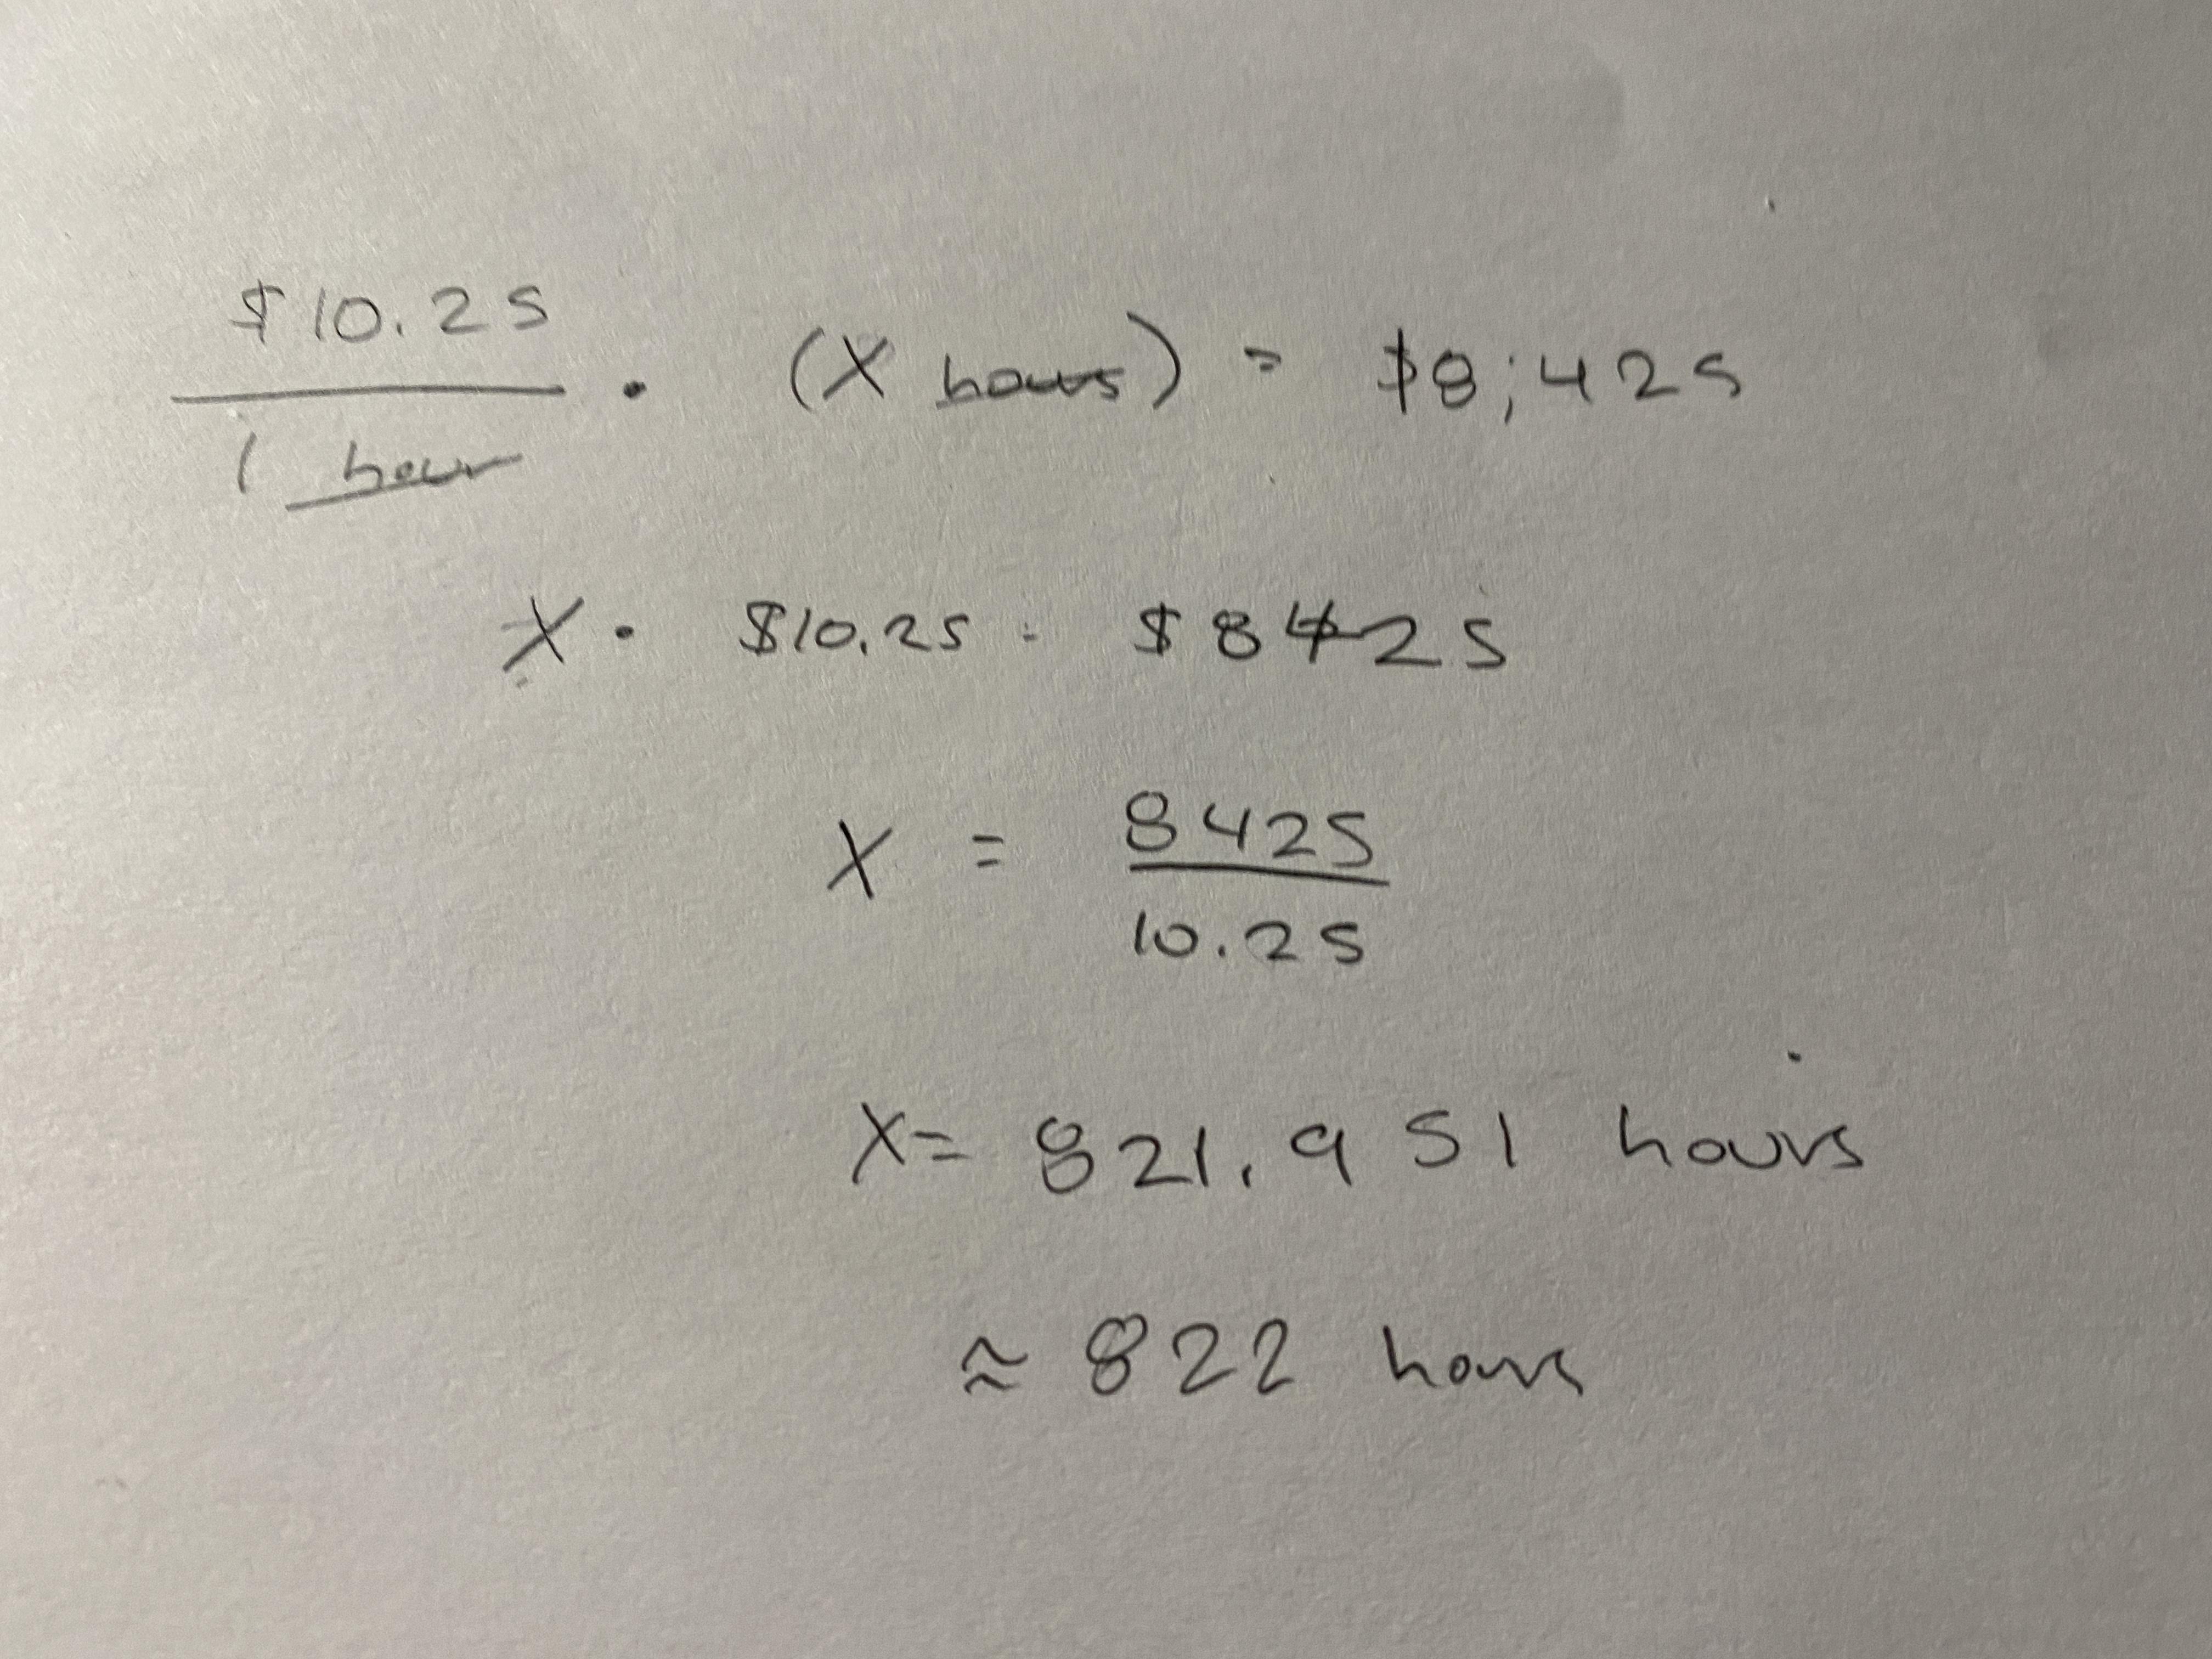 $10.25
1 hour
· (X hours) = $8,425
X · $10.25 = $8425
X = 8425
10.25
X = 821.951 hours
≈ 822 hours